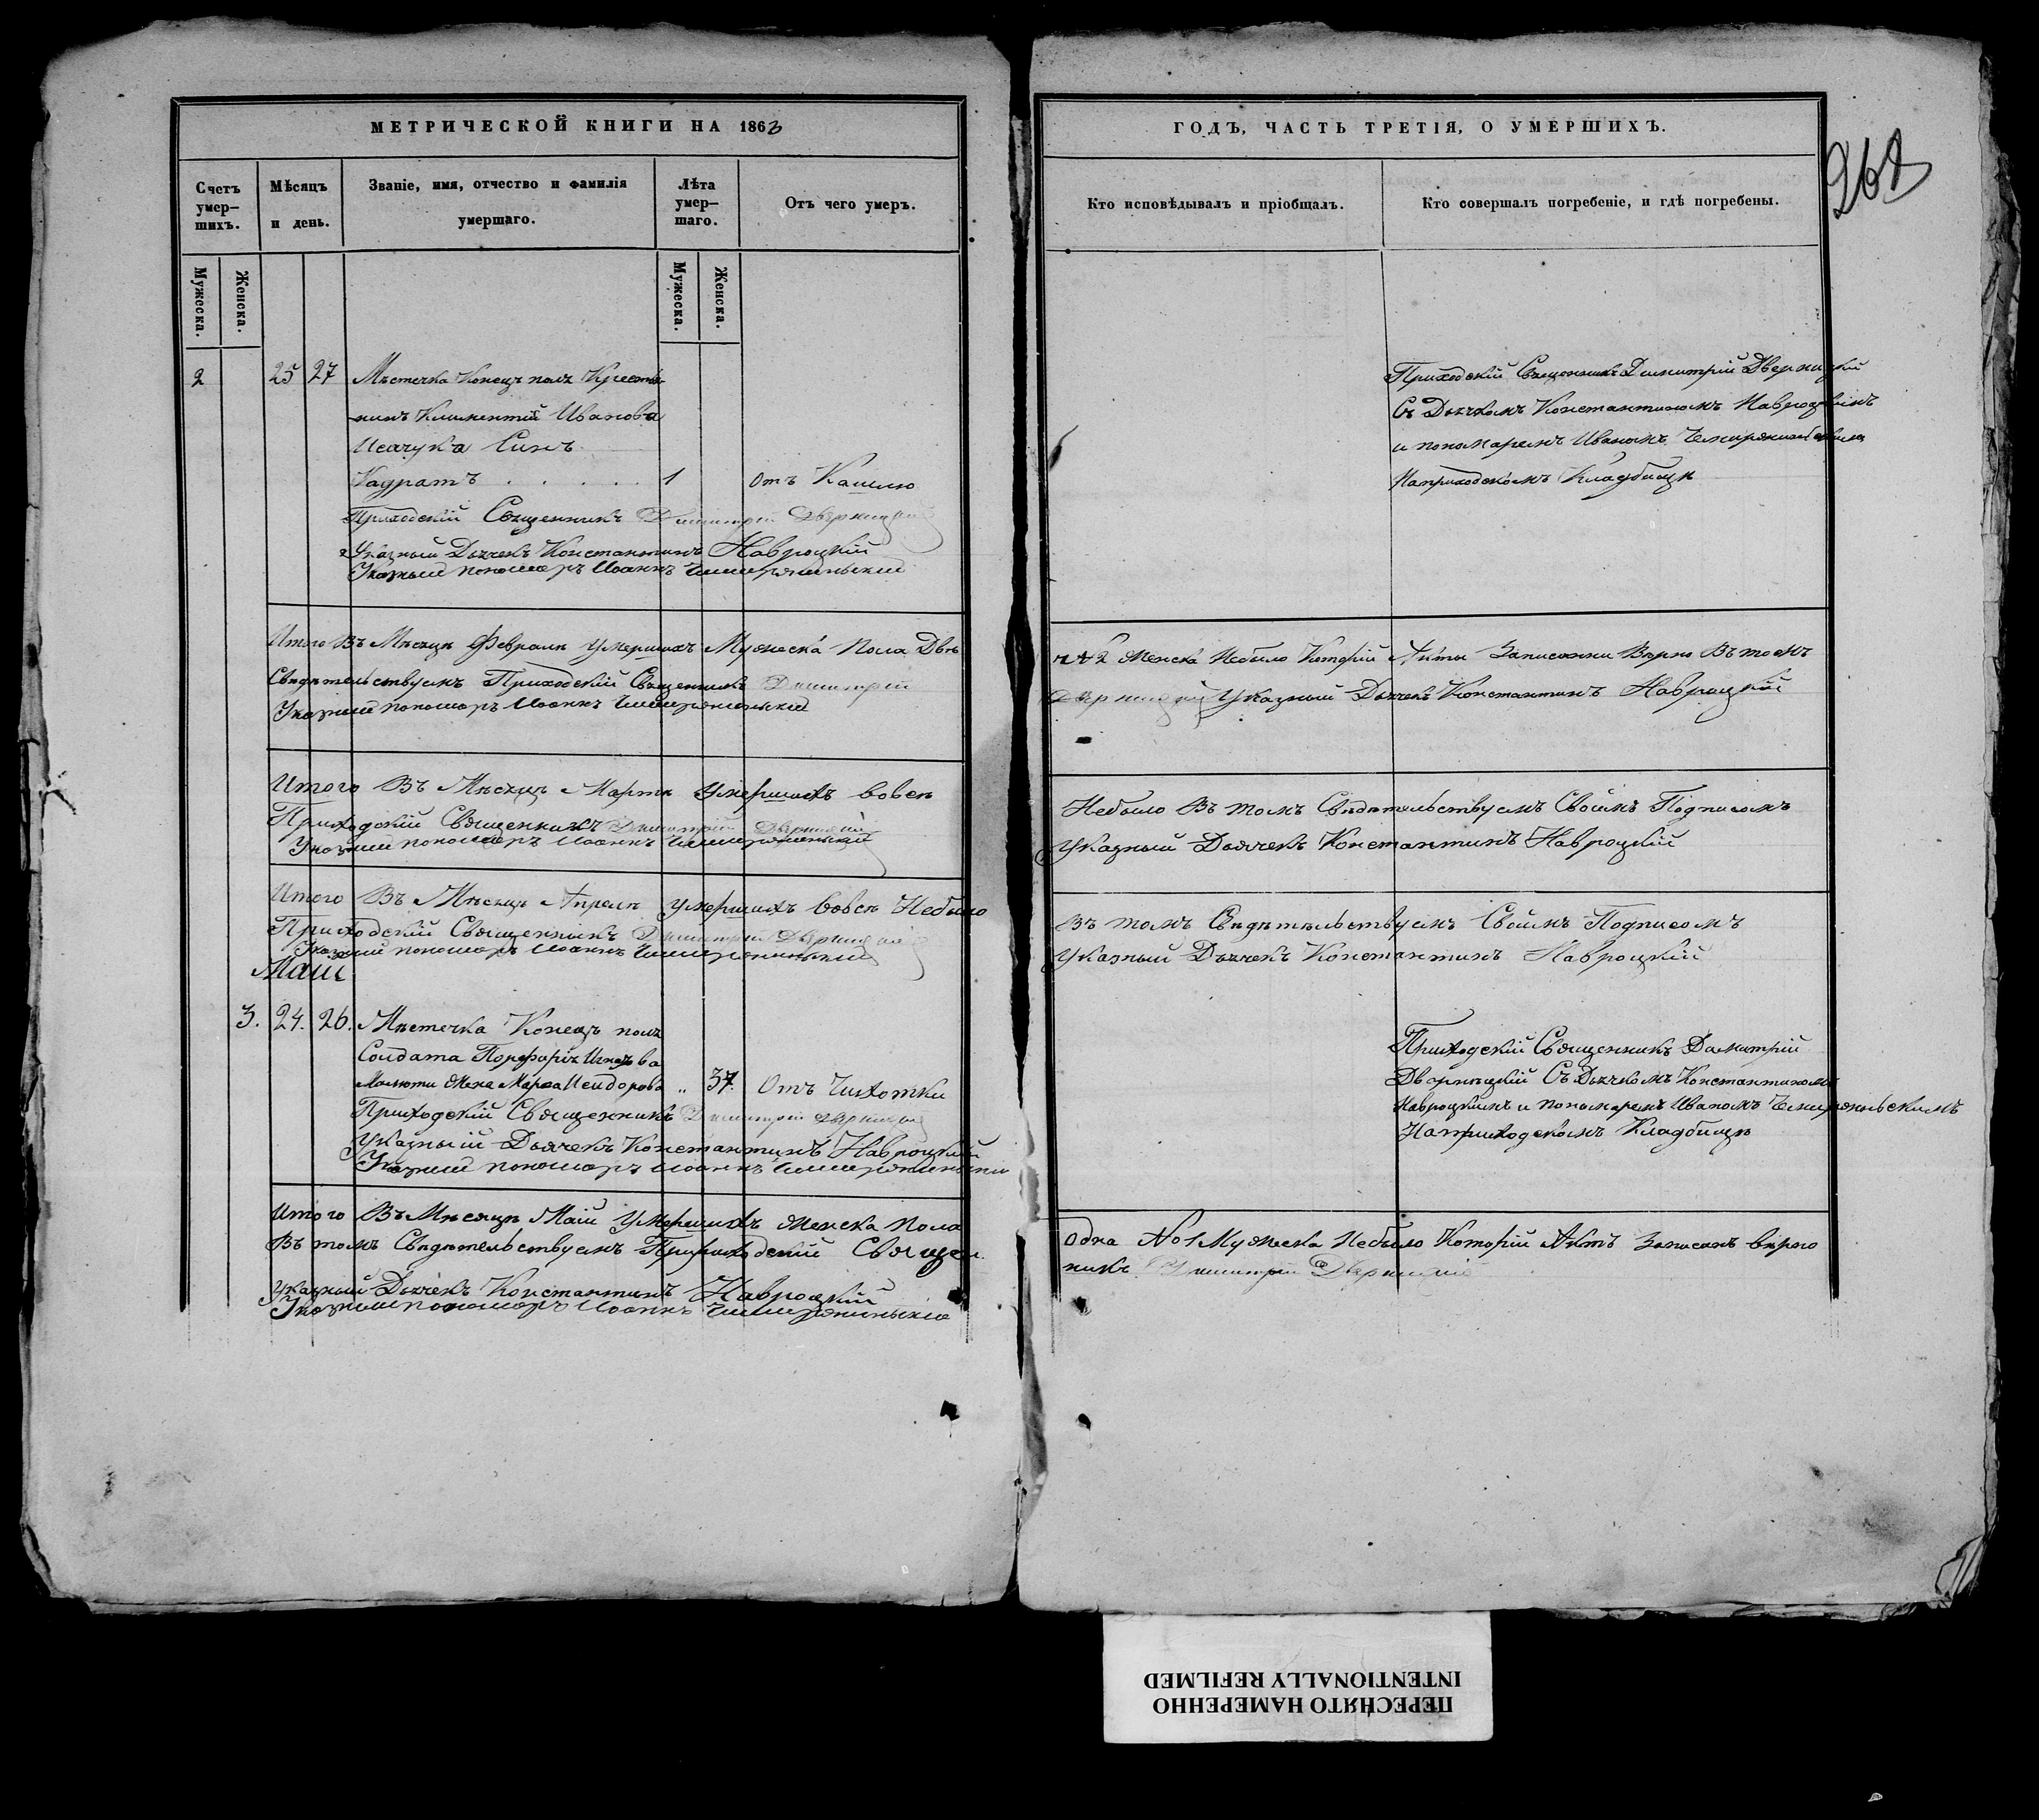 МЕТРИЧЕСКОЙ КНИГИ НА 1863
Счетъ умер–шихъ.
Мѣсяцъ и день.
Званіе, имя, отчество и фамилія умершаго.
Лѣта умер–шаго.
Отъ чего умеръ.
Мужеска.
Женска.
Мужеска.
Женска.
2 25 27 Мѣстечка Конецъ поля Крестья
нинъ Климентій Иванова
Исачука Синъ
Кадратъ . . . . . 1 Отъ Кашлю
Приходскій Священникъ Димитрій Дверницкій
Указный Дьячекъ Константинъ Навроцкій
Указный пономаръ Иоаннъ
Итого Въ Мѣсяцѣ Февралѣ Умершихъ Мужеска Пола Двѣ
Свидѣтельствуемъ Приходскій Священникъ Димитрій
Указный пономаръ Иоаннъ
Итого Въ Мѣсяцѣ Мартѣ Умершихъ вовсе
Приходскій Священникъ Димитрій Дверницкій
Указный пономаръ Иоаннъ
Итого Въ Мѣсяцѣ Апрелѣ Умершихъ вовсе Небыло
Приходскій Священникъ Димитрій Дверницкій
Указный пономаръ Иоаннъ
Маій
3. 24. 26. Мѣстечка Конецъ поля
Солдата Порфирія
Жена Марѳа Исидорова „ 37. Отъ Чихотки
Приходскій Священникъ Димитрій Дверницкій
Указный Дьячекъ Константинъ Навроцкій
Указный пономаръ Иоаннъ
Итого Въ Мѣсяцѣ Маій Умершихъ Женска Пола
Въ томъ Свидѣтельствуемъ Приходскій Священ
Указный Дьячекъ Константинъ Навроцкій
Указный пономаръ Иоаннъ
ГОДЪ, ЧАСТЬ ТРЕТІЯ, О УМЕРШИХЪ.
Кто исповѣдывалъ и пріобщалъ.
Кто совершалъ погребеніе, и гдѣ погребены.
Приходскій Священникъ Димитрій Дверницкій
Съ Дьячкомъ Константиномъ Навроцкимъ
и пономаремъ Иваномъ
Наприходскомъ Кладбищѣ
2 Женска Небыло Которій Акты Записанни Вѣрно Въ томъ
Дверницкій Указный Дьячекъ Константинъ Навроцкій
Небыло Въ томъ Свидѣтельствуемъ Своимъ Подписомъ
Указный Дьячекъ Константинъ Навроцкій
Въ томъ Свидѣтельствуемъ Своимъ Подписомъ
Указный Дьячекъ Константинъ Навроцкій
Приходскій Священникъ Димитрій
Дверницкій Съ Дьячкомъ Константиномъ
Навроцкимъ и пономаремъ Иваномъ
Наприходскомъ Кладбищѣ
Одна No 1 Мужеска Небыло Которій Актъ Записанъ вѣрно
никъ Димитрій Дверницкій
ПЕРЕСНЯТО НАМЕРЕННО
INTENTIONALLY REFILMED